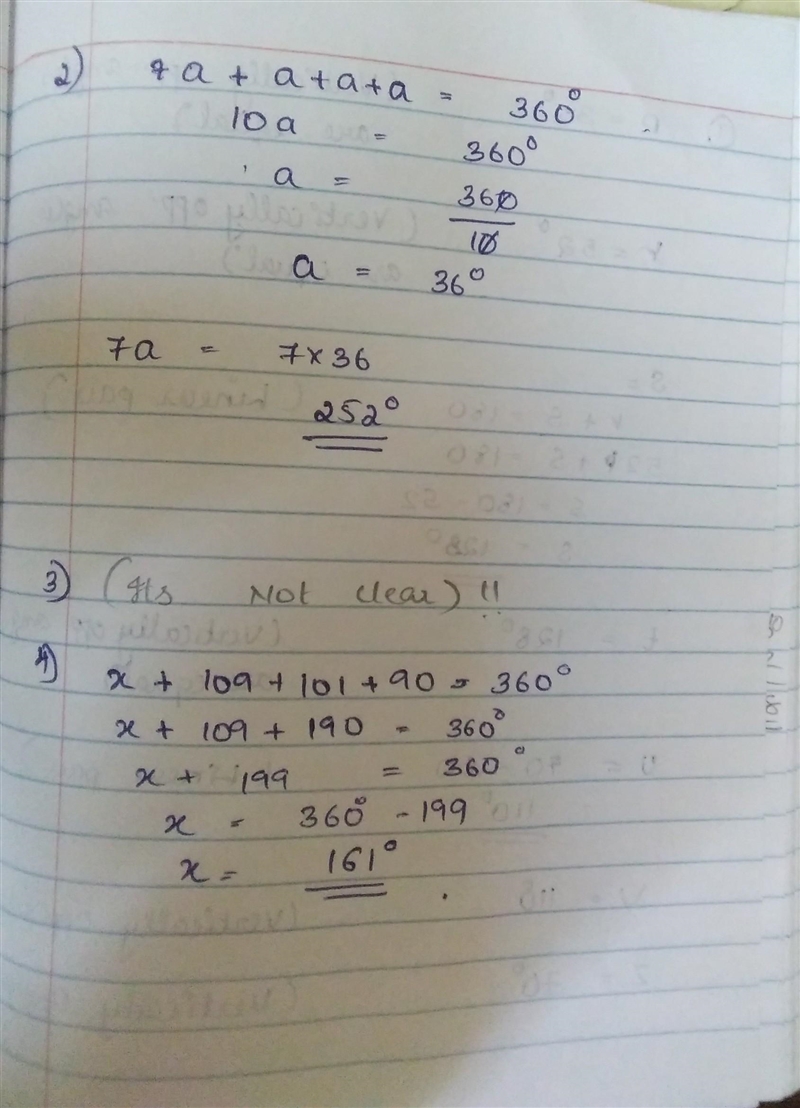 2) 7a + a+a+a = 360°
10a = 360°
a = 360
10
a = 36°
7a = 7×36
252°
3) (Its Not clear) !!
4) x + 109 + 101 + 90 = 360°
x + 109 + 190 = 360°
x + 199 = 360°
x = 360° - 199
x = 161°